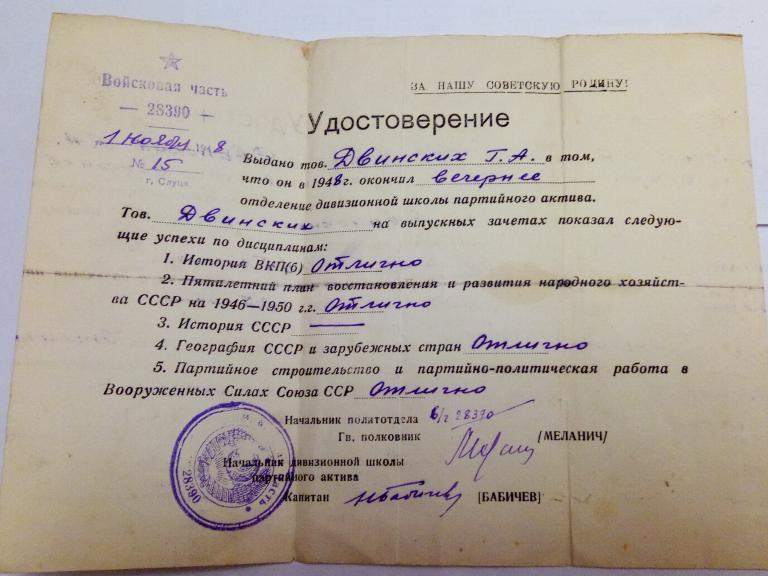 Войсковая часть
— 28390 —
1 ноября 1948
№ 15
г. Слуцк
ЗА НАШУ СОВЕТСКУЮ РОДИНУ!
Удостоверение
Выдано тов. Двинских Г. А. в том,
что он в 1948 г. окончил вечернее
отделение дивизионной школы партийного актива.
Тов. Двинских на выпускных зачетах показал следую-
щие успехи по дисциплинам:
1. История ВКП(б) Отлично
2. Пятилетний план восстановления и развития народного хозяйст-
ва СССР на 1946—1950 г.г. Отлично
3. История СССР —
4. География СССР и зарубежных стран Отлично
5. Партийное строительство и партийно-политическая работа в
Вооруженных Силах Союза ССР Отлично
Начальник политотдела в/ч 28390
Гв. полковник [МЕЛАНИЧ]
Начальник дивизионной школы
партийного актива
Капитан [БАБИЧЕВ]
28390